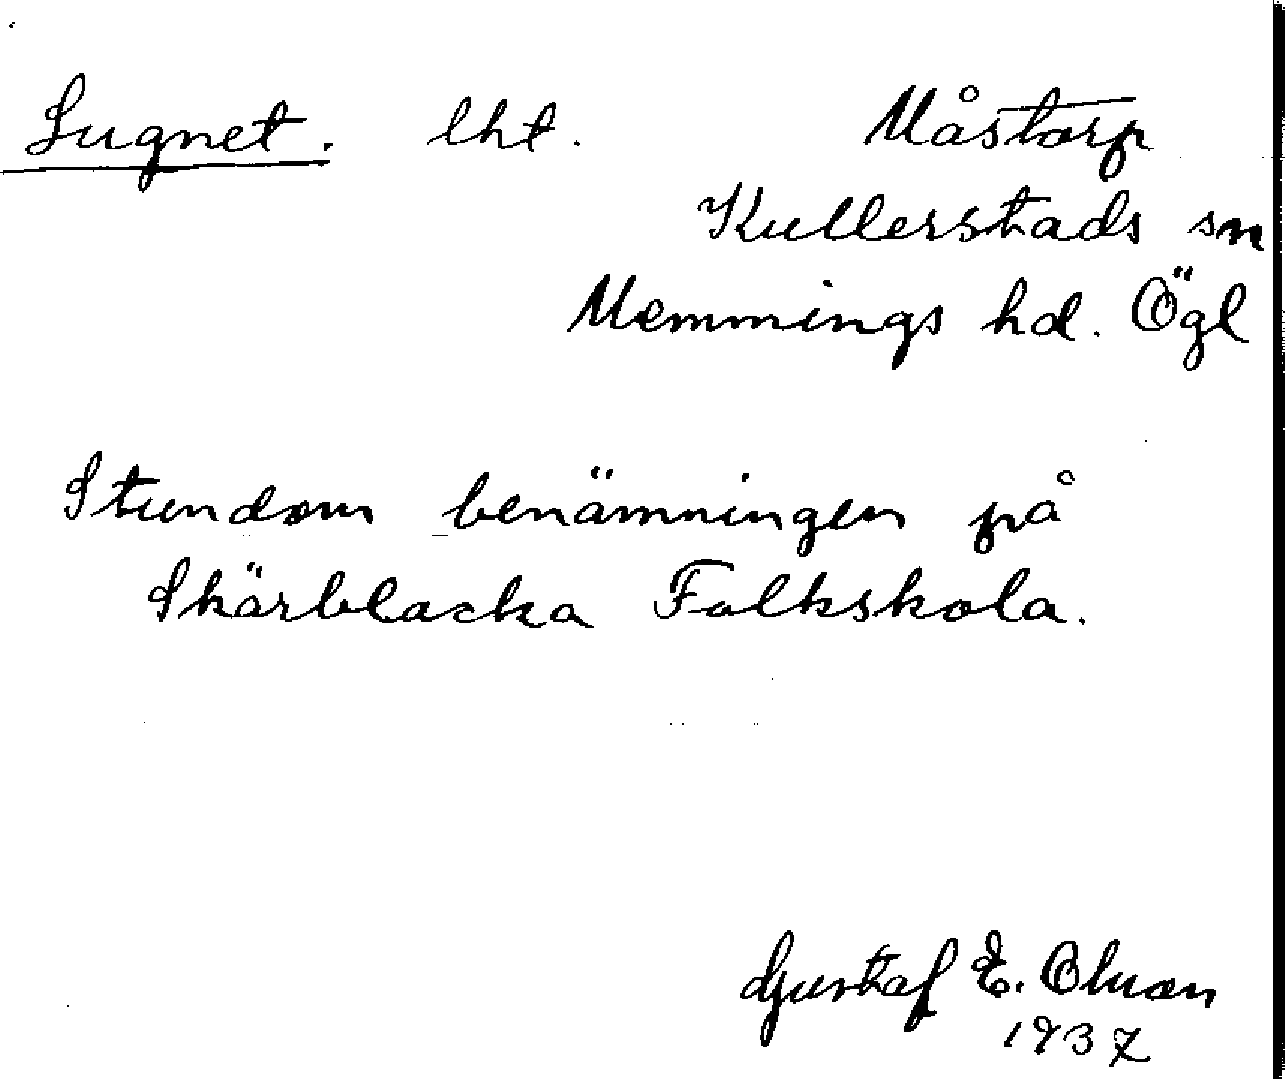 Lugnet. lht. Måstorp
Kullerstads sn
Memmings hd. Ögl
Stundom benämningen på
Skärblacka Folkskola.
Gustaf E. Olson
1937